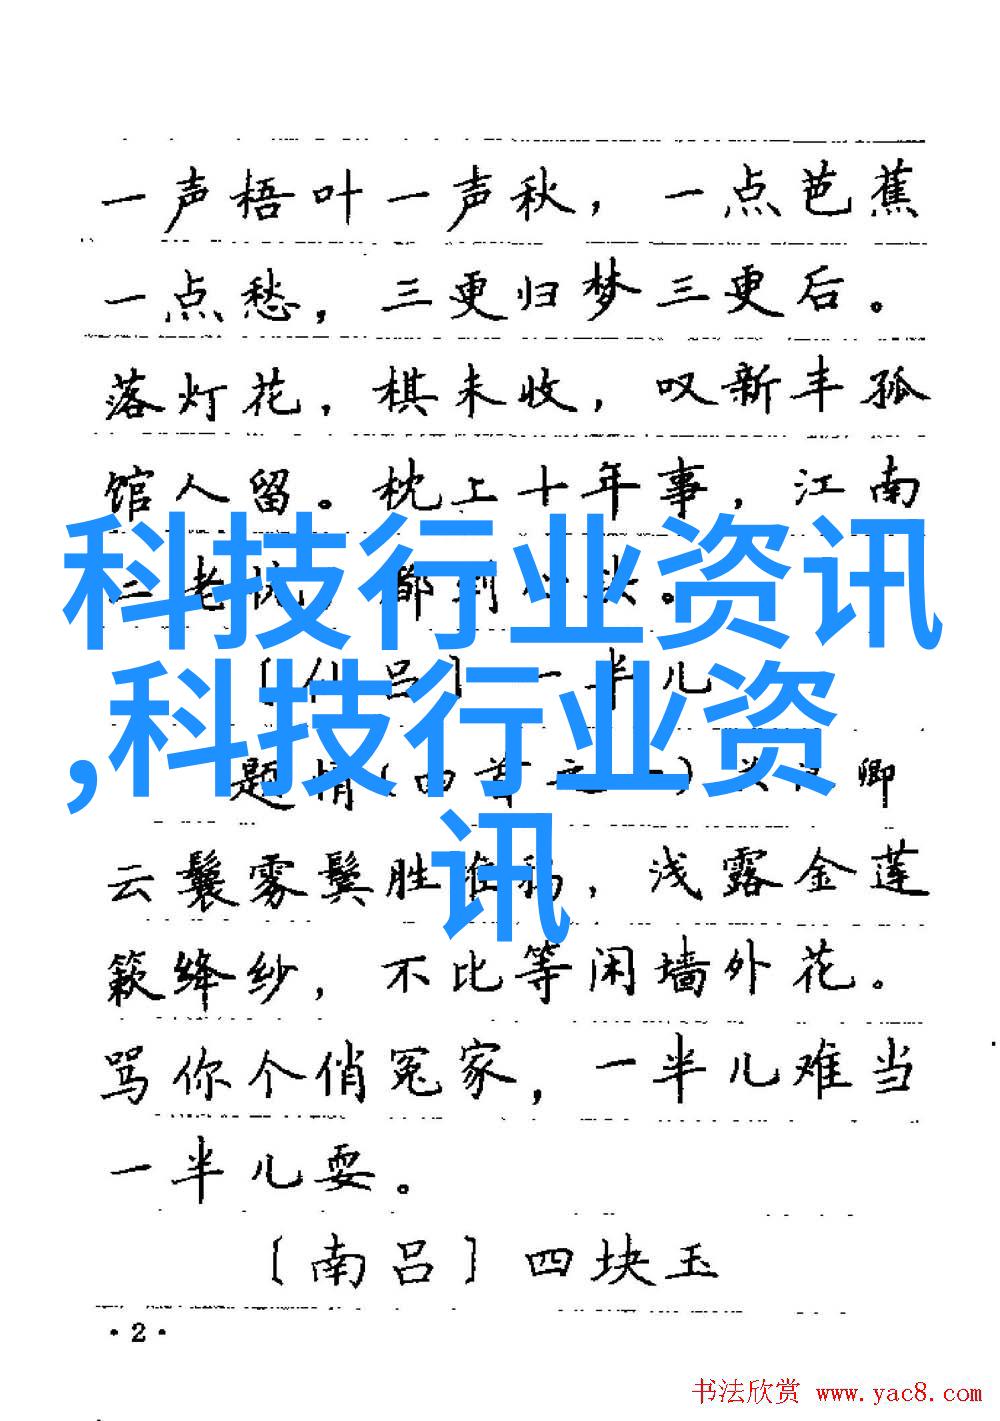 一声梧叶一声秋，一点芭蕉
一点愁，三更归梦三更后。
落灯花，棋未收，叹新丰孤
馆人留。枕上十年事，江南
二老忧，都到心头。
科技行业资讯
〔仙吕〕一半儿
,科技行业资
题情(四首之一)关汉卿
讯
云鬟雾鬓胜堆鸦，浅露金莲
簌绛纱，不比等闲墙外花。
骂你个俏冤家，一半儿难当
一半儿耍。
〔南吕〕四块玉
·2·
书法欣赏 www.yac8.com